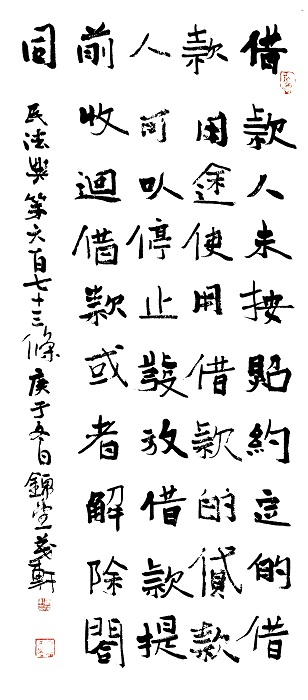 借款人未按照約定的借
款用途使用借款的貸款
人可以停止發放借款提
前收迴借款或者解除閤
同
民法典第六百七十三條庚子